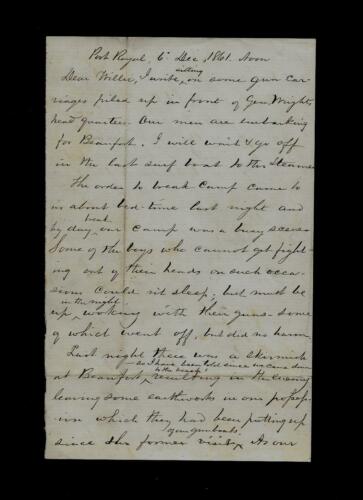 Port Royal, 6 Dec, 1861. Noon
Dear Willie, I write, sitting on some gun car-
riages piled up in front of Gen. Wright's
head quarters. Our men are embarking
for Beaufort. I will wait & go off
in the last surf boat to the Steamer
The order to break camp came to
us about bed-time last night and
by day break our camp was a busy scene.
Some of the boys who cannot get fight-
ing out of their heads on such occa-
sions could not sleep; but must be
up in the night working with their guns- some
of which went off, but did no harm.
Last night there was a skirmish
- so I have been told since we came down
to the beach
at Beaufort, resulting in the enemy
leaving some earthworks in our posses-
sion which they had been putting up
since the former visit of our gunboats. As our